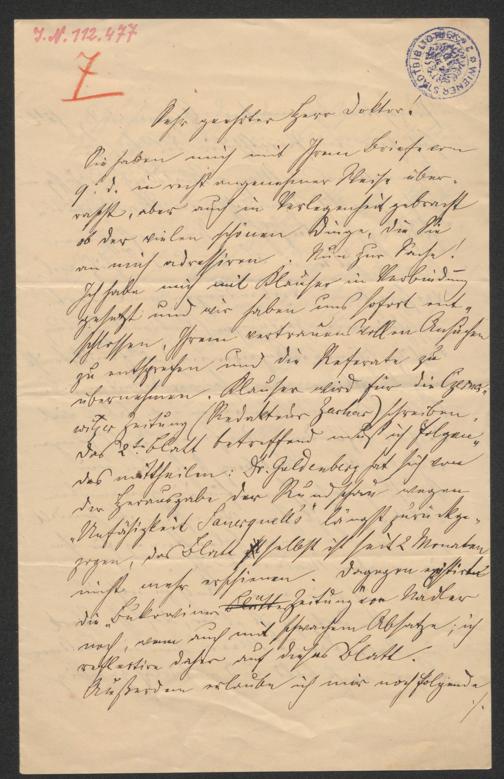 J.N. 112.477
WIENER STADTBIBLIOTHEK
7
Sehr geehrter Herr Doktor!
Sie haben mich mit Ihrem Briefe vom
9. d. in recht angenehmer Weise über-
rascht, aber auch in Verlegenheit gebracht
ob der vielen schönen Dinge, die Sie
an mich adressiren. Nun zur Sache!
Ich habe mich mit Klauser in Verbindung
gesetzt und wir haben uns sofort ent-
schlossen, Ihrem vertrauensvollen Ansuchen
zu entsprechen und die Referate zu
übernehmen. Klauser wird für die Czerno-
witzer Zeitung (Redakteur Zachar) schreiben.
Das 2te Blatt betreffend muß ich Folgen-
des mittheilen: Dr. Goldenberg hat sich von
der Herausgabe der Rundschau wegen
Unfähigkeit längst zurückge-
zogen, das Blatt selbst ist seit 2 Monaten
nicht mehr erschienen. Dagegen existirt
die „Bukowiner Zeitung" von Nadler
noch, wenn auch mit schwachem Absatze; ich
reflectire daher auf dieses Blatt.
Außerdem erlaube ich mir noch folgende
./.